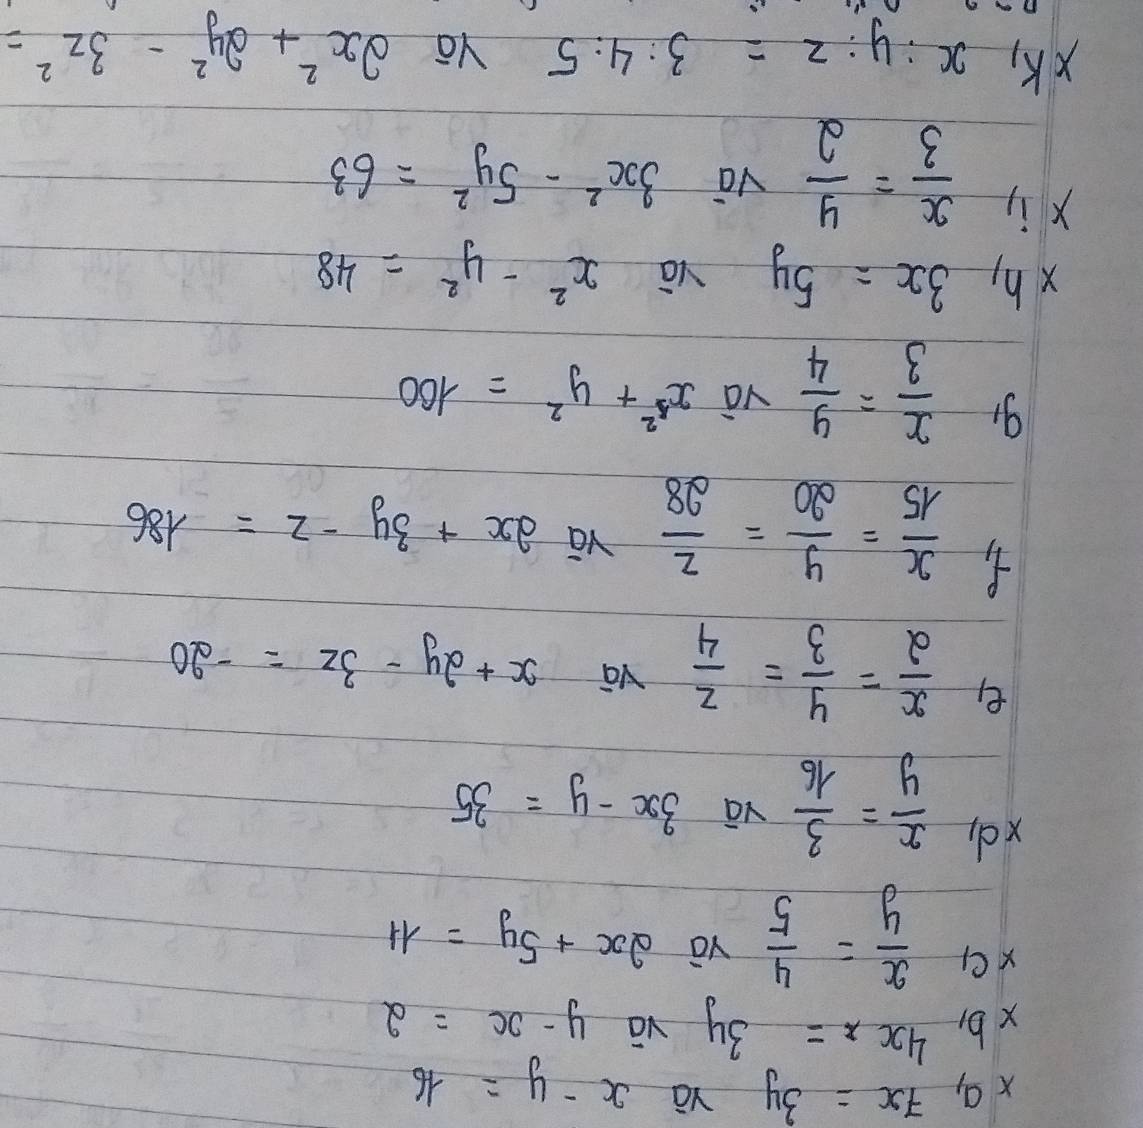 x a, 7x = 3y và x - y = 16
x b, 4x = 3y và y - x = 2
x c, x/y = 4/5 và 2x + 5y = 11
x d, x/y = 3/16 và 3x - y = 35
e, x/2 = y/3 = z/4 và x + 2y - 3z = -20
f, x/15 = y/20 = z/28 và 2x + 3y - z = 186
g, x/3 = y/4 và x² + y² = 100
x h, 3x = 5y và x² - y² = 48
x i, x/3 = y/2 và 3x² - 5y² = 63
x k, x : y : z = 3 : 4 : 5 và 2x² + 2y² - 3z² =